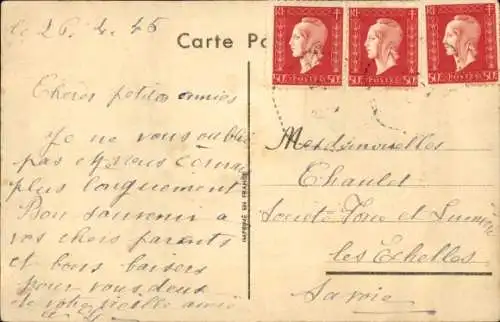 le 26. 4. 45
Carte Po
RF 50c POSTES 50c
RF 50c POSTES 50c
RF 50c POSTES 50c
Chères petites amies
Je ne vous oublie
pas et vous
plus longuement
Bon souvenir à
vos chers parents
et bons baisers
pour vous deux
de votre vieille amie
IMPRIMÉ EN FRANCE
Mesdemoiselles
Chauld
Société Force et Lumière
les Echelles
Savoie